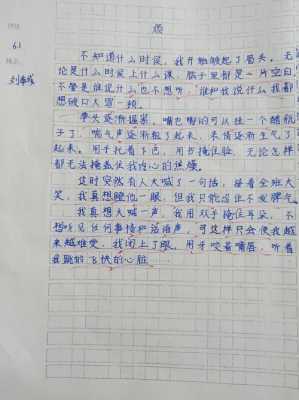 烦
6.1
不知道什么时候，我开始皱起了眉头。无
论是什么时候上什么课，脑子里都是一片空白，
不管是谁说什么也不想听，谁和我说什么我都
想破口大骂一顿。
拳头逐渐握紧，嘴巴嘟的可以挂一个醋瓶
子了，喘气声逐渐粗了起来，表情逐渐生气了
起来。用手托着下巴，用书掩住脸，无论怎样
都无法掩盖住我内心的焦燥。
这时突然有人大喊了一句话，接着全班大
笑，我真想瞪他一眼，但我只能忍住不发脾气。
我真想大喊一声，我用双手掩住耳朵，不
想听见任何事情和话语声，可这样只会使我越
来越难受，我闭上了眼。用牙咬着嘴唇，听着
我跳的飞快的心脏